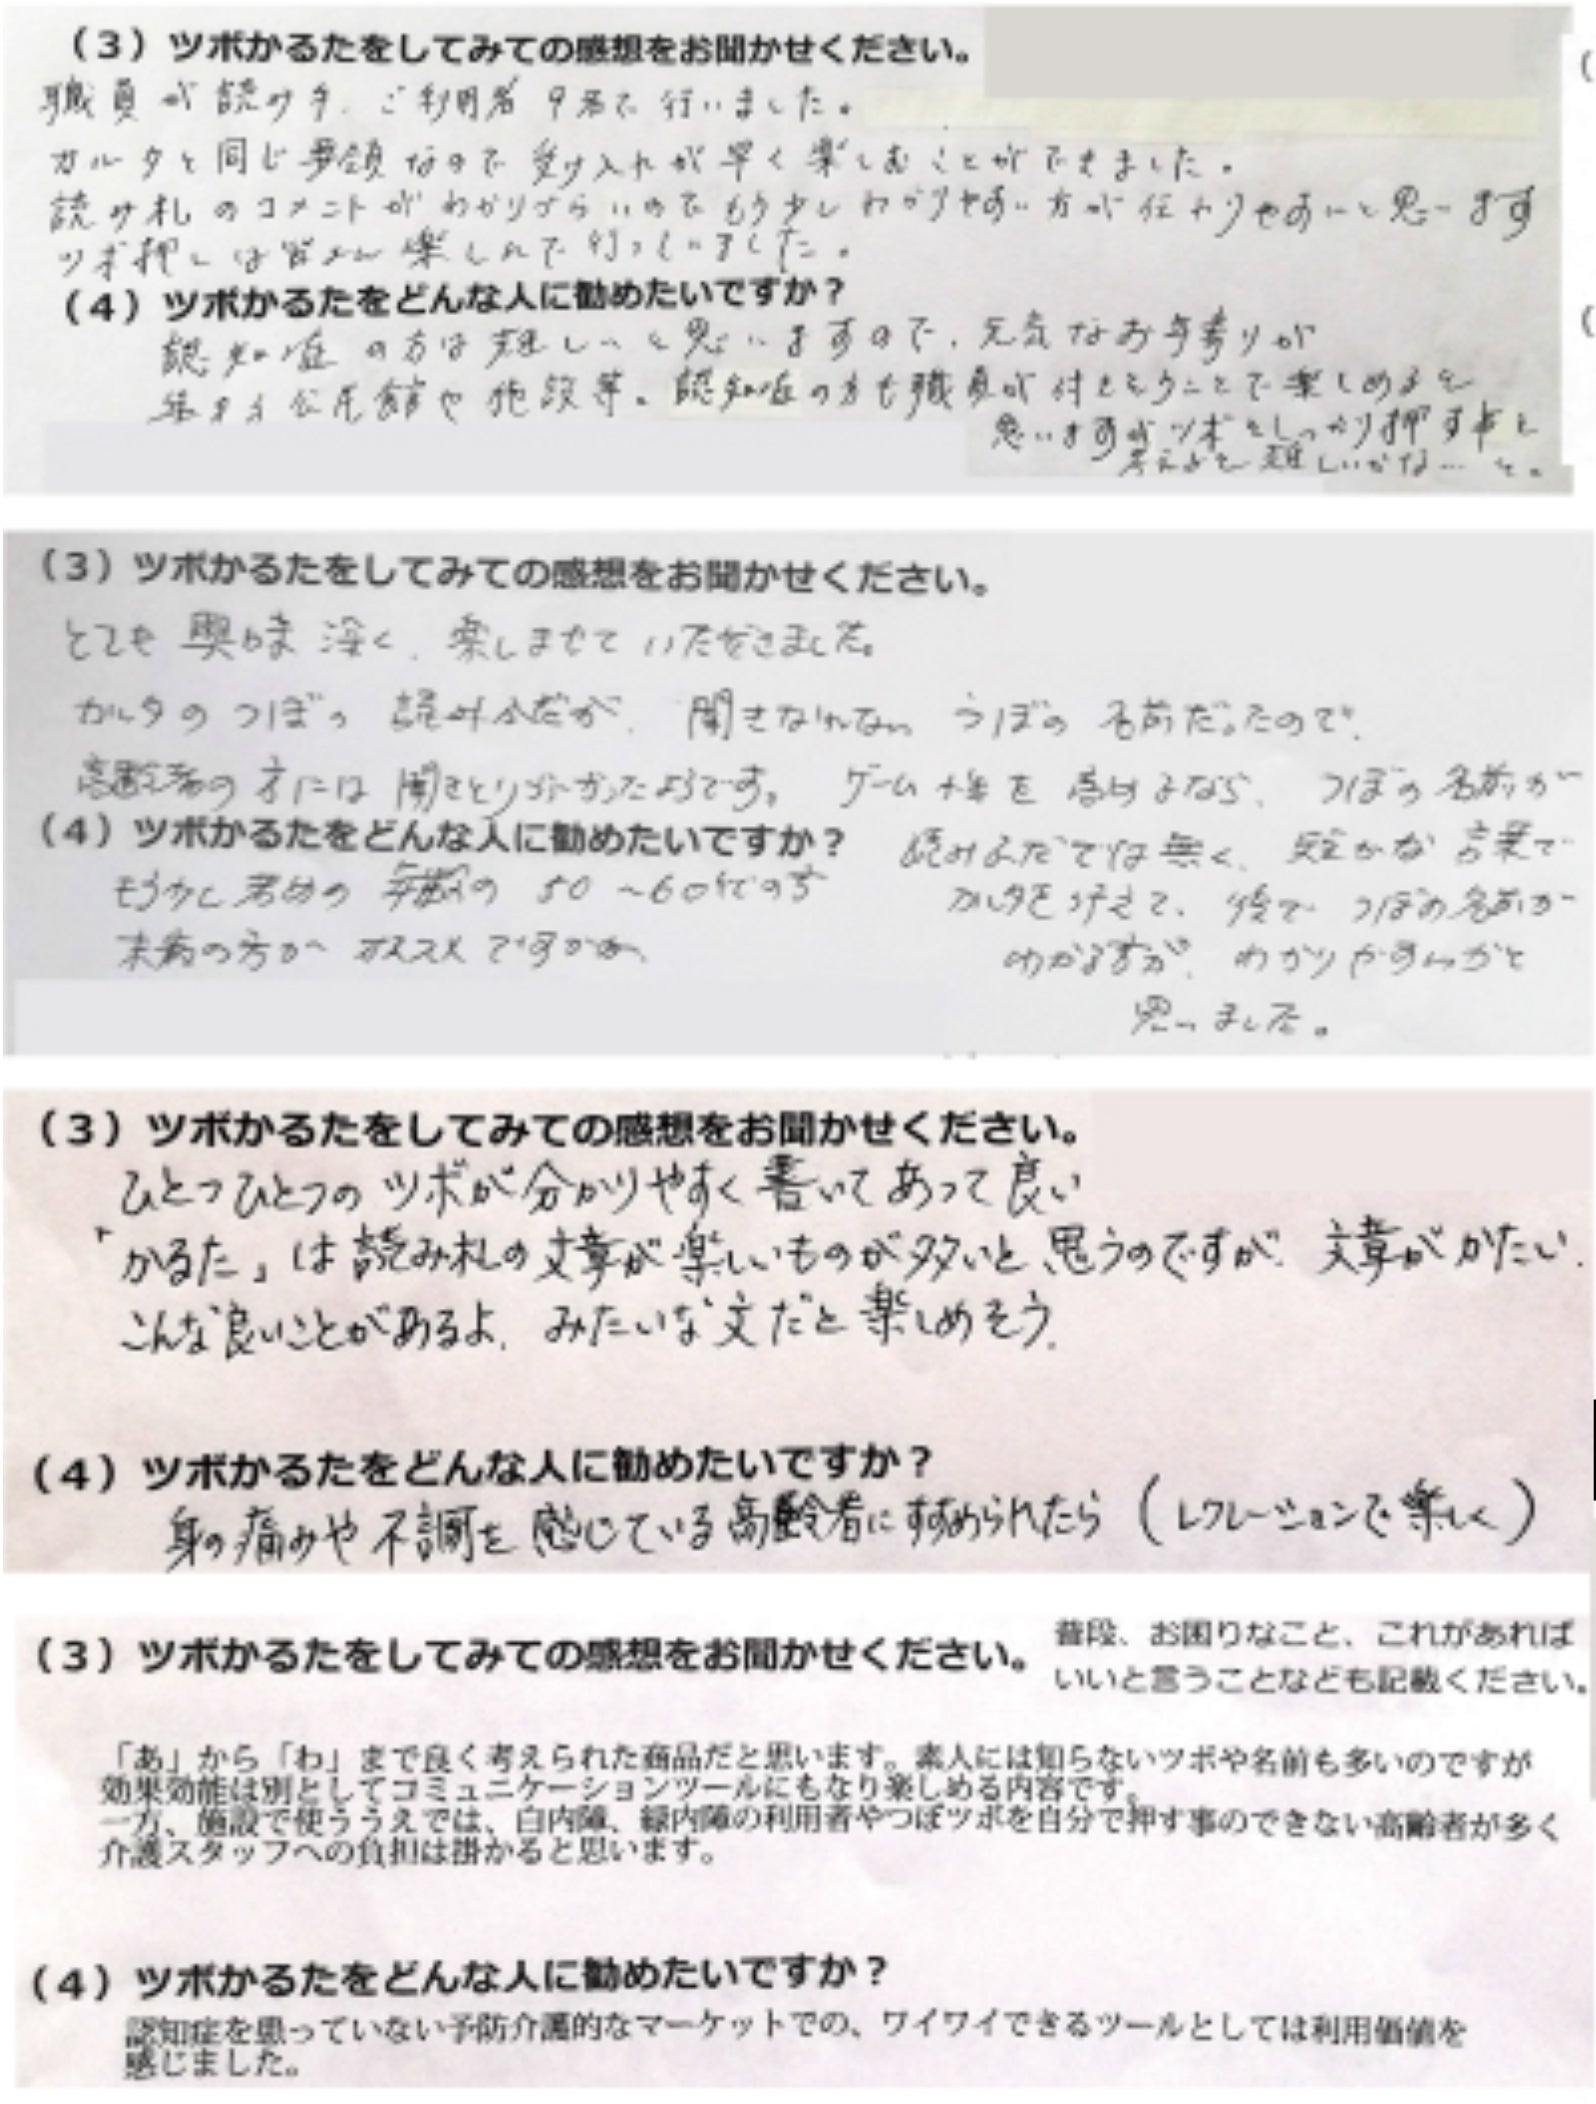 （3）ツボかるたをしてみての感想をお聞かせください。
職員が読み手、ご利用者9名で行いました。
カルタと同じ要領なので受け入れが早く楽しむことができました。
読み札のコメントがわかりづらいのでもう少しわかりやすい方が伝わりやすいと思います
ツボ押しは皆さん楽しんで行っていました。
（4）ツボかるたをどんな人に勧めたいですか？
認知症の方は難しいと思いますので、元気なお年寄りが
集まる公民館や施設等。認知症の方も職員が付きそうことで楽しめると
思いますがツボをしっかり押す事と
考えると難しいかな…と。
（3）ツボかるたをしてみての感想をお聞かせください。
とても興味深く、楽しませていただきました。
カルタのつぼの読み人だが、聞きなれない つぼの名前だったので、
高齢者の方には聞きとりづらかったようです。 ゲーム性を高めるなら、つぼの名前が
読みふだでは無く、短かな言葉で
カルタを行えて、後でつぼの名前が
わかる方が、わかりやすいかと
思いました。
（4）ツボかるたをどんな人に勧めたいですか？
もう少し若めの年齢の50〜60代の方
未病の方がオススメですかね
（3）ツボかるたをしてみての感想をお聞かせください。
ひとつひとつのツボが分かりやすく書いてあって良い
「かるた」は読み札の文章が楽しいものが多いと思うのですが、文章がかたい.
こんな良いことがあるよ、みたいな文だと楽しめそう.
（4）ツボかるたをどんな人に勧めたいですか？
身の痛みや不調を感じている高齢者にすすめられたら（レクレーションで楽しく）
（3）ツボかるたをしてみての感想をお聞かせください。
普段、お困りなこと、これがあれば
いいと言うことなども記載ください。
「あ」から「わ」まで良く考えられた商品だと思います。素人には知らないツボや名前も多いのですが
効果効能は別としてコミュニケーションツールにもなり楽しめる内容です。
一方、施設で使ううえでは、白内障、緑内障の利用者やつぼツボを自分で押す事のできない高齢者が多く
介護スタッフへの負担は掛かると思います。
（4）ツボかるたをどんな人に勧めたいですか？
認知症を患っていない予防介護的なマーケットでの、ワイワイできるツールとしては利用価値を
感じました。